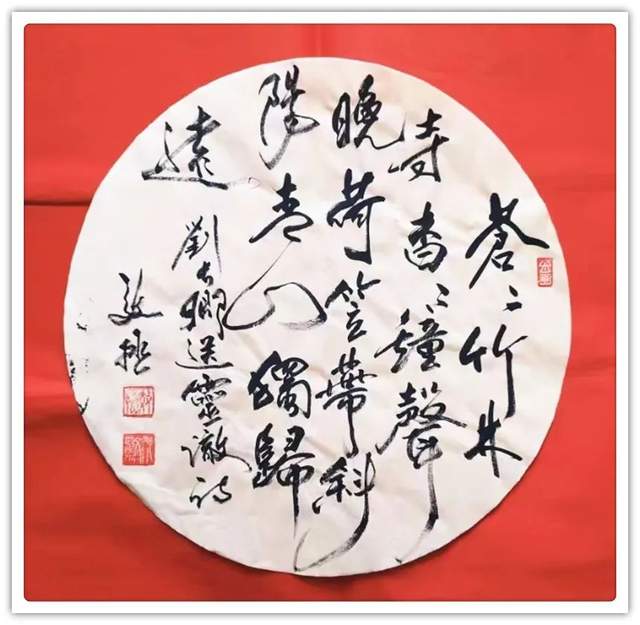 蒼〻竹林
寺杳〻鐘聲
晚荷笠帶斜
陽青山獨歸
遠
劉長卿送靈澈詩